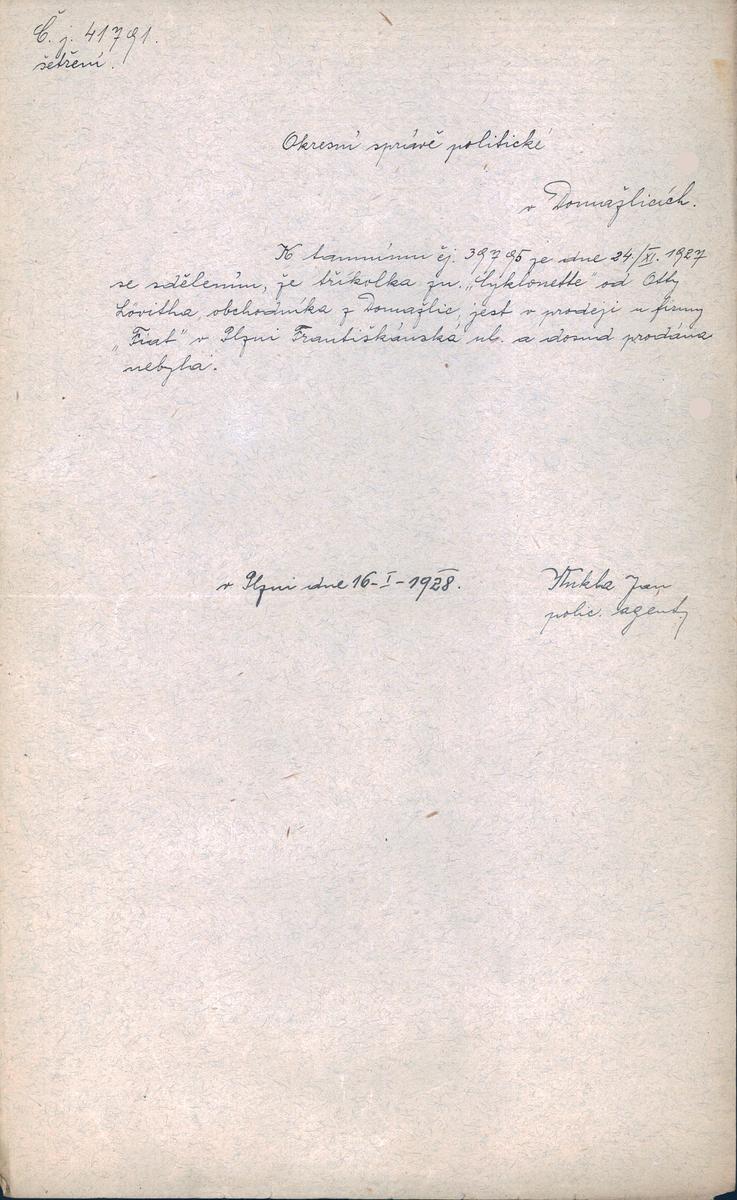 Č. j. 41791.
šetření.
Okresní správě politické
v Domažlicích.
K tamnímu čj. 39795 ze dne 24/XI. 1927
se sdělením, že tříkolka zn. „Cyklonette" od Otty
Lövitha, obchodníka z Domažlic, jest v prodeji u firmy
„Fiat" v Plzni Františkánská ul. a dosud prodána
nebyla.
v Plzni dne 16-I-1928.
Jan
polic. agent,